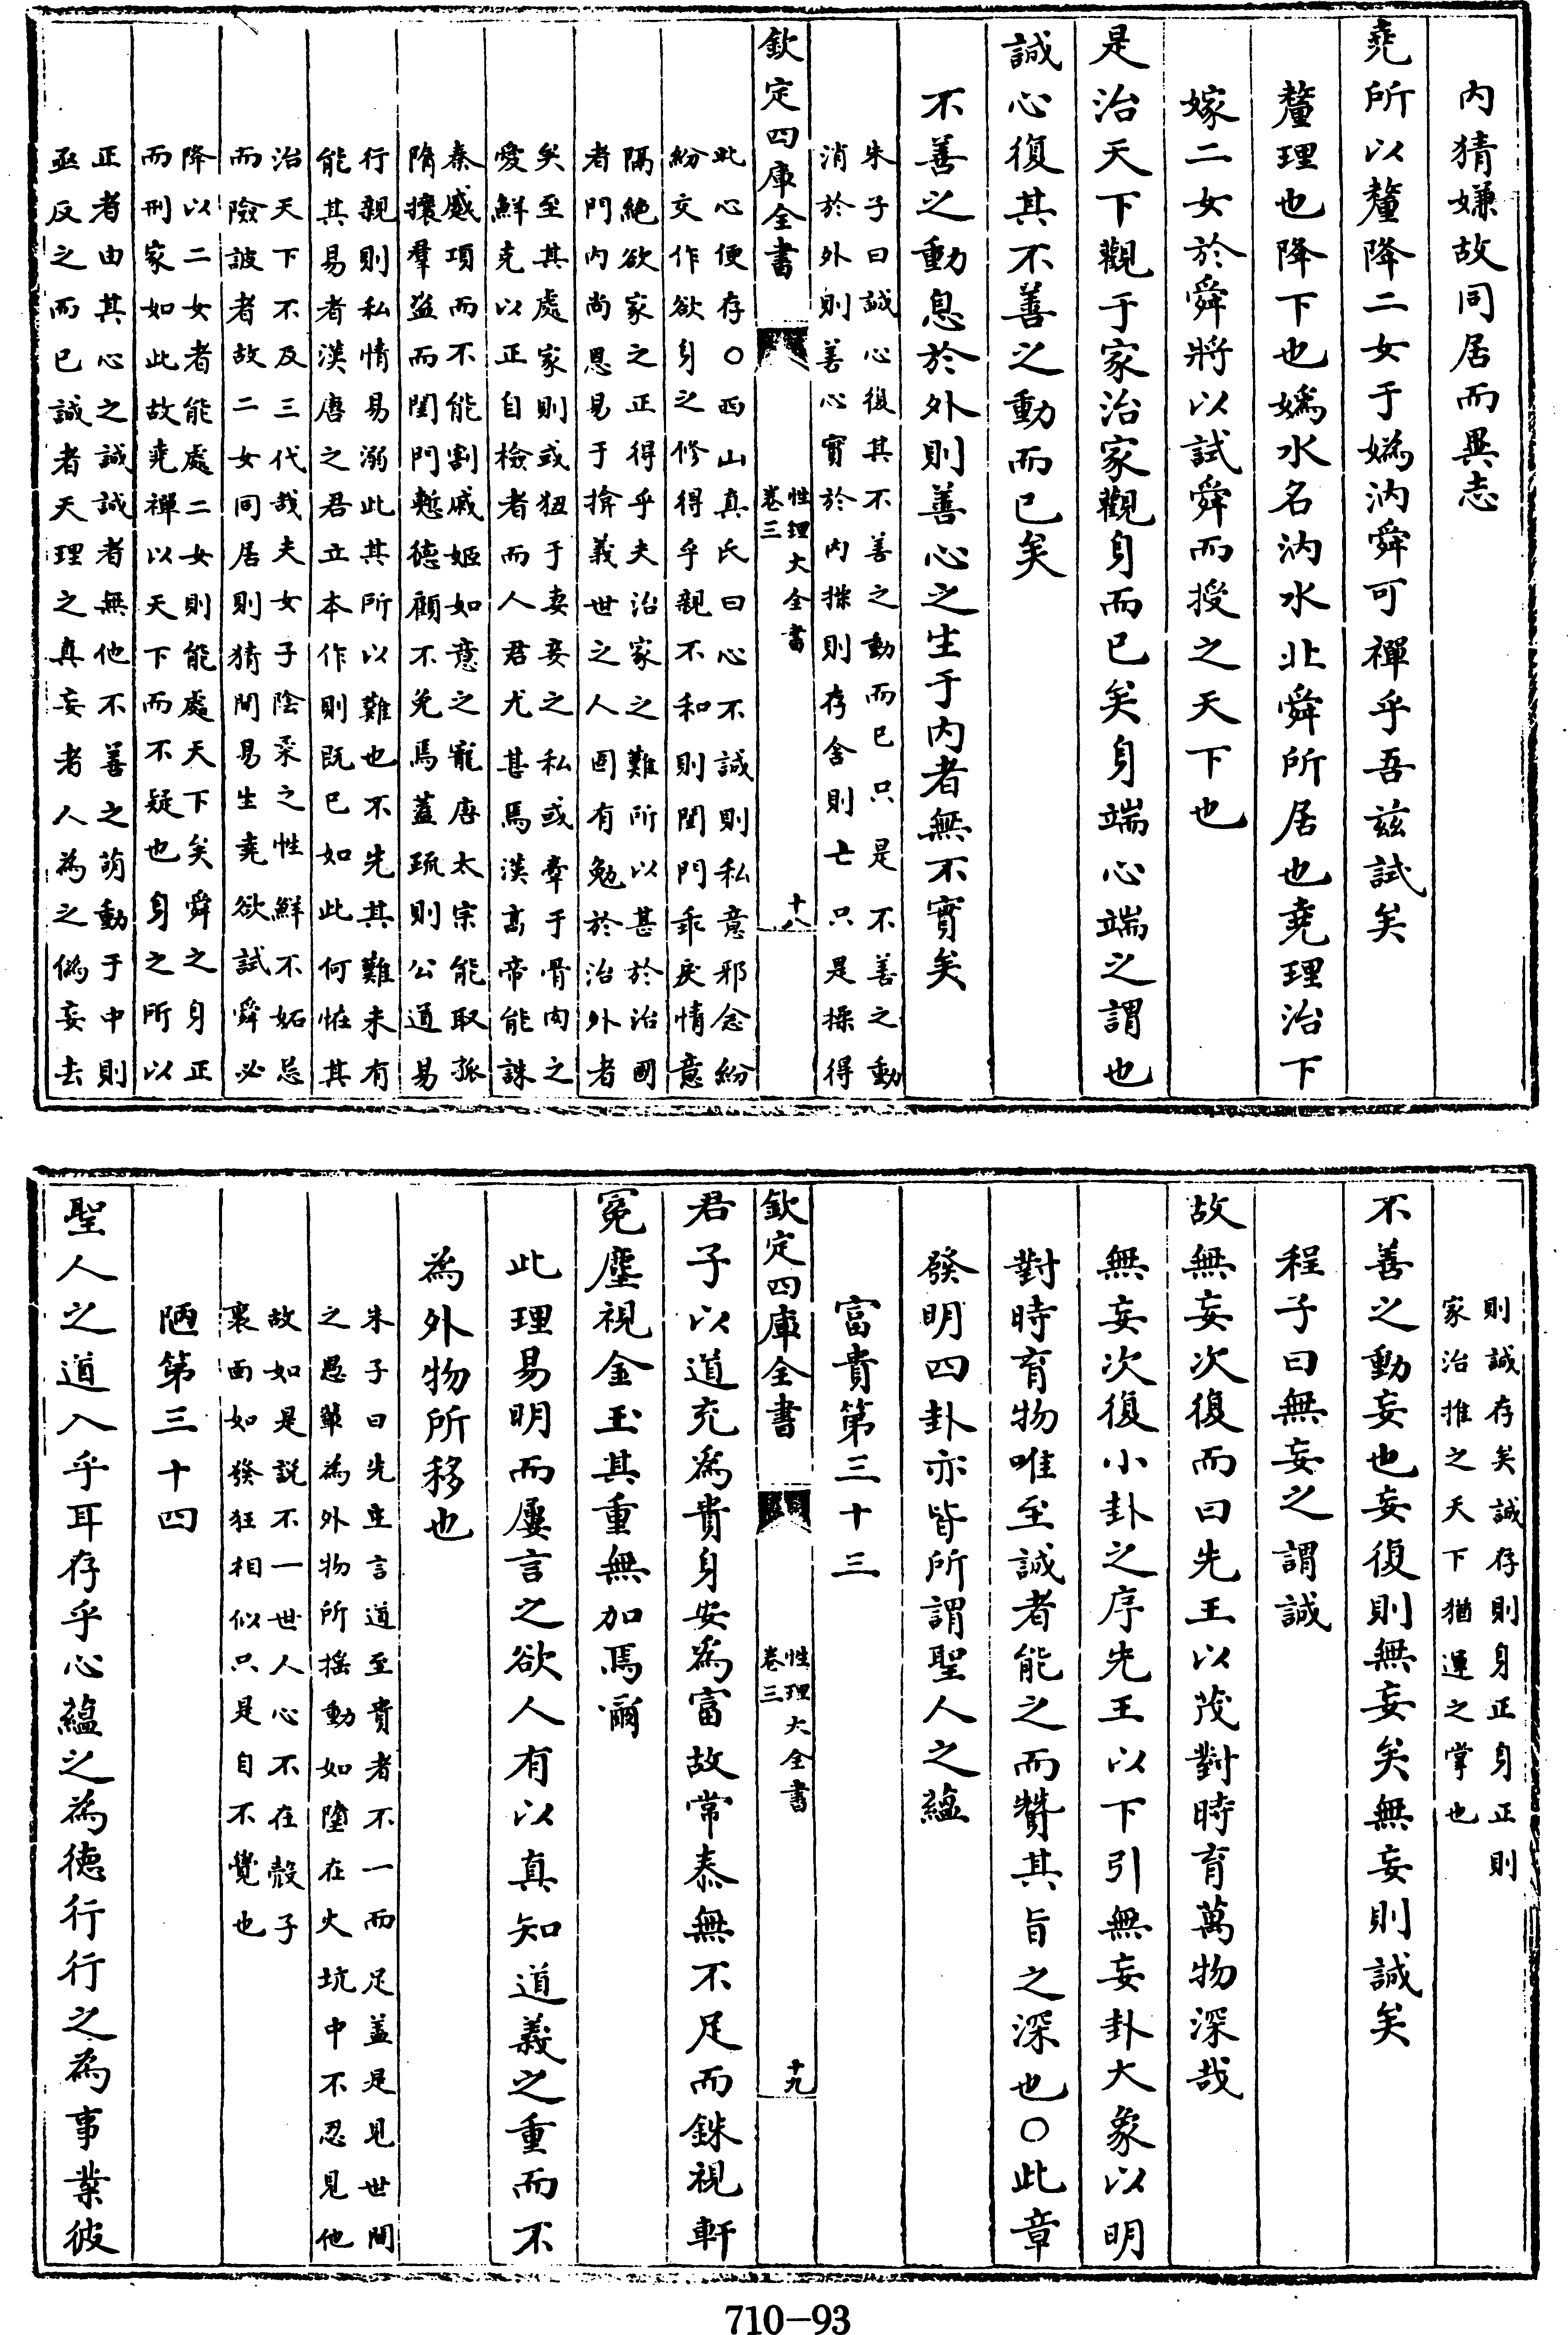 内猜嫌故同居而異志
堯所以釐降二女于媯汭舜可禪乎吾兹試矣
釐理也降下也媯水名汭水北舜所居也堯理治下
嫁二女於舜將以試舜而授之天下也
是治天下觀于家治家觀身而已矣身端心端之謂也
誠心復其不善之動而已矣
不善之動息於外則善心之生于内者無不實矣
朱子曰誠心復其不善之動而已只是不善之動
消於外則善心實於内操則存舍則亡只是操得
欽定四庫全書
性理大全書
卷三
十八
此心便存○西山真氏曰心不誠則私意邪念紛
紛交作欲身之修得乎親不和則閨門乖戾情意
隔絶欲家之正得乎夫治家之難所以甚於治國
者門内尚恩易于揜義世之人固有勉於治外者
矣至其處家則或狃于妻妾之私或牽于骨肉之
愛鮮克以正自檢者而人君尤甚焉漢髙帝能誅
秦蹙項而不能割戚姬如意之寵唐太宗能取孤
隋攘羣盗而閨門慙德顧不免焉蓋疏則公道易
行親則私情易溺此其所以難也不先其難未有
能其易者漢唐之君立本作則既已如此何怪其
治天下不及三代哉夫女子陰柔之性鮮不妬忌
而險詖者故二女同居則猜間易生堯欲試舜必
降以二女者能處二女則能處天下矣舜之身正
而刑家如此故堯禪以天下而不疑也身之所以
正者由其心之誠誠者無他不善之萌動于中則
亟反之而已誠者天理之真妄者人為之僞妄去
則誠存矣誠存則身正身正則
家治推之天下猶運之掌也
不善之動妄也妄復則無妄矣無妄則誠矣
程子曰無妄之謂誠
故無妄次復而曰先王以茂對時育萬物深哉
無妄次復小卦之序先王以下引無妄卦大象以明
對時育物唯至誠者能之而贊其旨之深也○此章
發明四卦亦皆所謂聖人之蘊
富貴第三十三
欽定四庫全書
性理大全書
卷三
十九
君子以道充為貴身安為富故常泰無不足而銖視軒
冕塵視金玉其重無加焉爾
此理易明而屢言之欲人有以真知道義之重而不
為外物所移也
朱子曰先生言道至貴者不一而足盖是見世間
之愚輩為外物所揺動如墮在火坑中不忍見他
故如是說不一世人心不在殼子
裏面如發狂相似只是自不覺也
陋第三十四
聖人之道入乎耳存乎心蘊之為徳行行之為事業彼
710-93